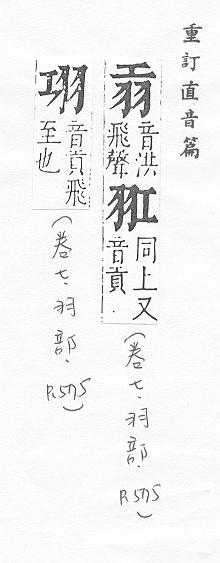 重訂直音篇
音洪飛聲
羾同上又音貢
(卷七、羽部、P.575)
音貢飛至也
(卷七、羽部、P.575)